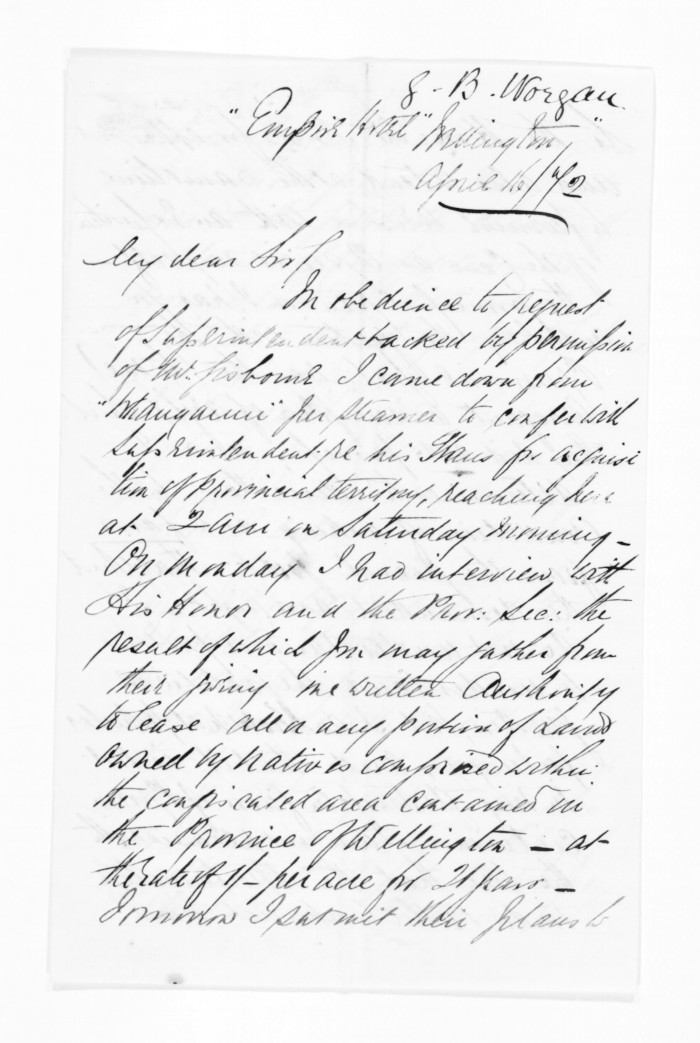 B. Worgan
"Empire Hotel" Wellington
April 16/72
My dear Sir/
In obedience to request
of Superintendent backed by permission
of Mr. Gisborne I came down from
"Whanganui" per steamer to confer with
Superintendent re his Plans for acquisi
tion of Provincial territory, reaching here
at 2 am on Saturday morning—
On Monday I had interview with
His Honor and the Prov: Sec: the
result of which you may gather from
their giving me written Authority
to lease all or any portion of Lands
owned by natives comprised within
the confiscated area contained in
the Province of Wellington — at
the rate of 1/- per acre for 21 years —
Tomorrow I submit their Plans to